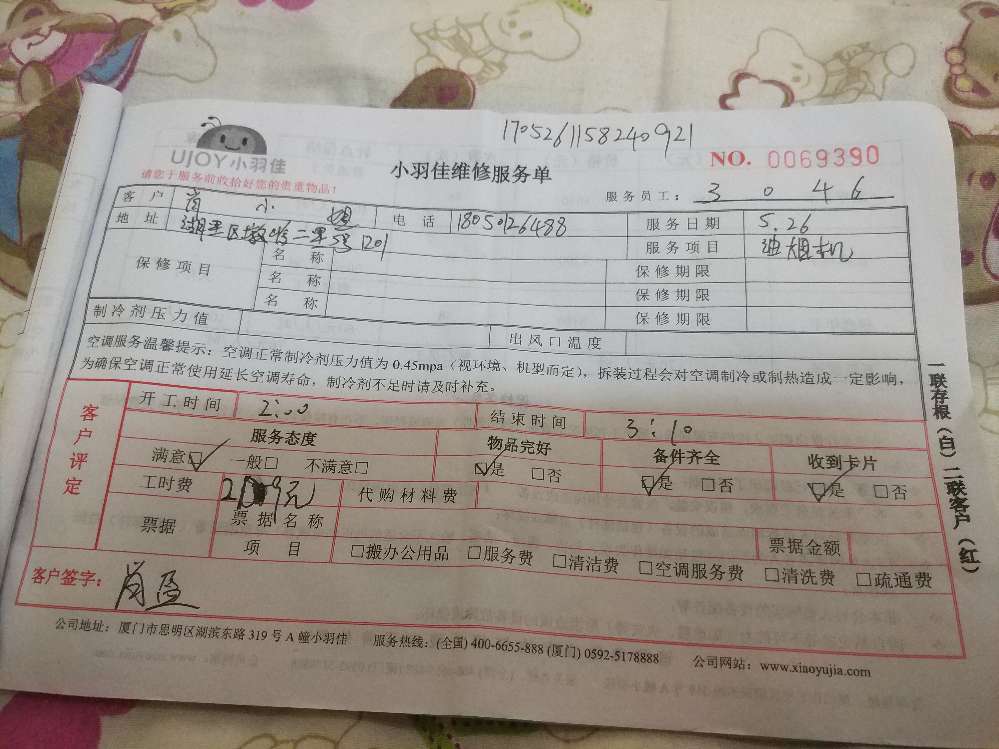 1705261158240921
UJOY小羽佳
请您于服务前收拾好您的贵重物品!
小羽佳维修服务单
NO. 0069390
服务员工: 3046
客户 肖小姐 电话 18050126488 服务日期 5.26
地址 湖里区 二里 号1201 服务项目 油烟机
保修项目 名称 保修期限
名称 保修期限
名称 保修期限
制冷剂压力值 出风口温度
空调服务温馨提示:空调正常制冷剂压力值为0.45mpa(视环境、机型而定),拆装过程会对空调制冷或制热造成一定影响,
为确保空调正常使用延长空调寿命,制冷剂不足时请及时补充。
客户评定
开工时间 2:00 结束时间 3:10
服务态度 物品完好 备件齐全 收到卡片
满意□ 一般□ 不满意□ □是 □否 □是 □否 □是 □否
工时费 元 代购材料费
票据 票据名称 票据金额
项目 □搬办公用品 □服务费 □清洁费 □空调服务费 □清洗费 □疏通费
客户签字: 肖
公司地址:厦门市思明区湖滨东路319号A幢小羽佳 服务热线:(全国) 400-6655-888 (厦门) 0592-5178888 公司网站:www.xiaoyujia.com
一联存根(白)二联客户(红)